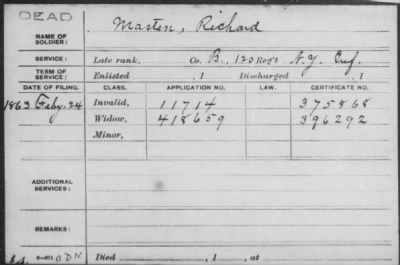 DEAD
NAME OF SOLDIER: Masten, Richard
SERVICE: Late rank, Co. B., 120 Reg't N.Y. Inf.
TERM OF SERVICE: Enlisted , 1 Discharged , 1
DATE OF FILING. CLASS. APPLICATION NO. LAW. CERTIFICATE NO.
1863 Feby. 24 Invalid, 11714 375868
Widow, 418659 396292
Minor,
ADDITIONAL SERVICES:
REMARKS:
Died , 1 , at